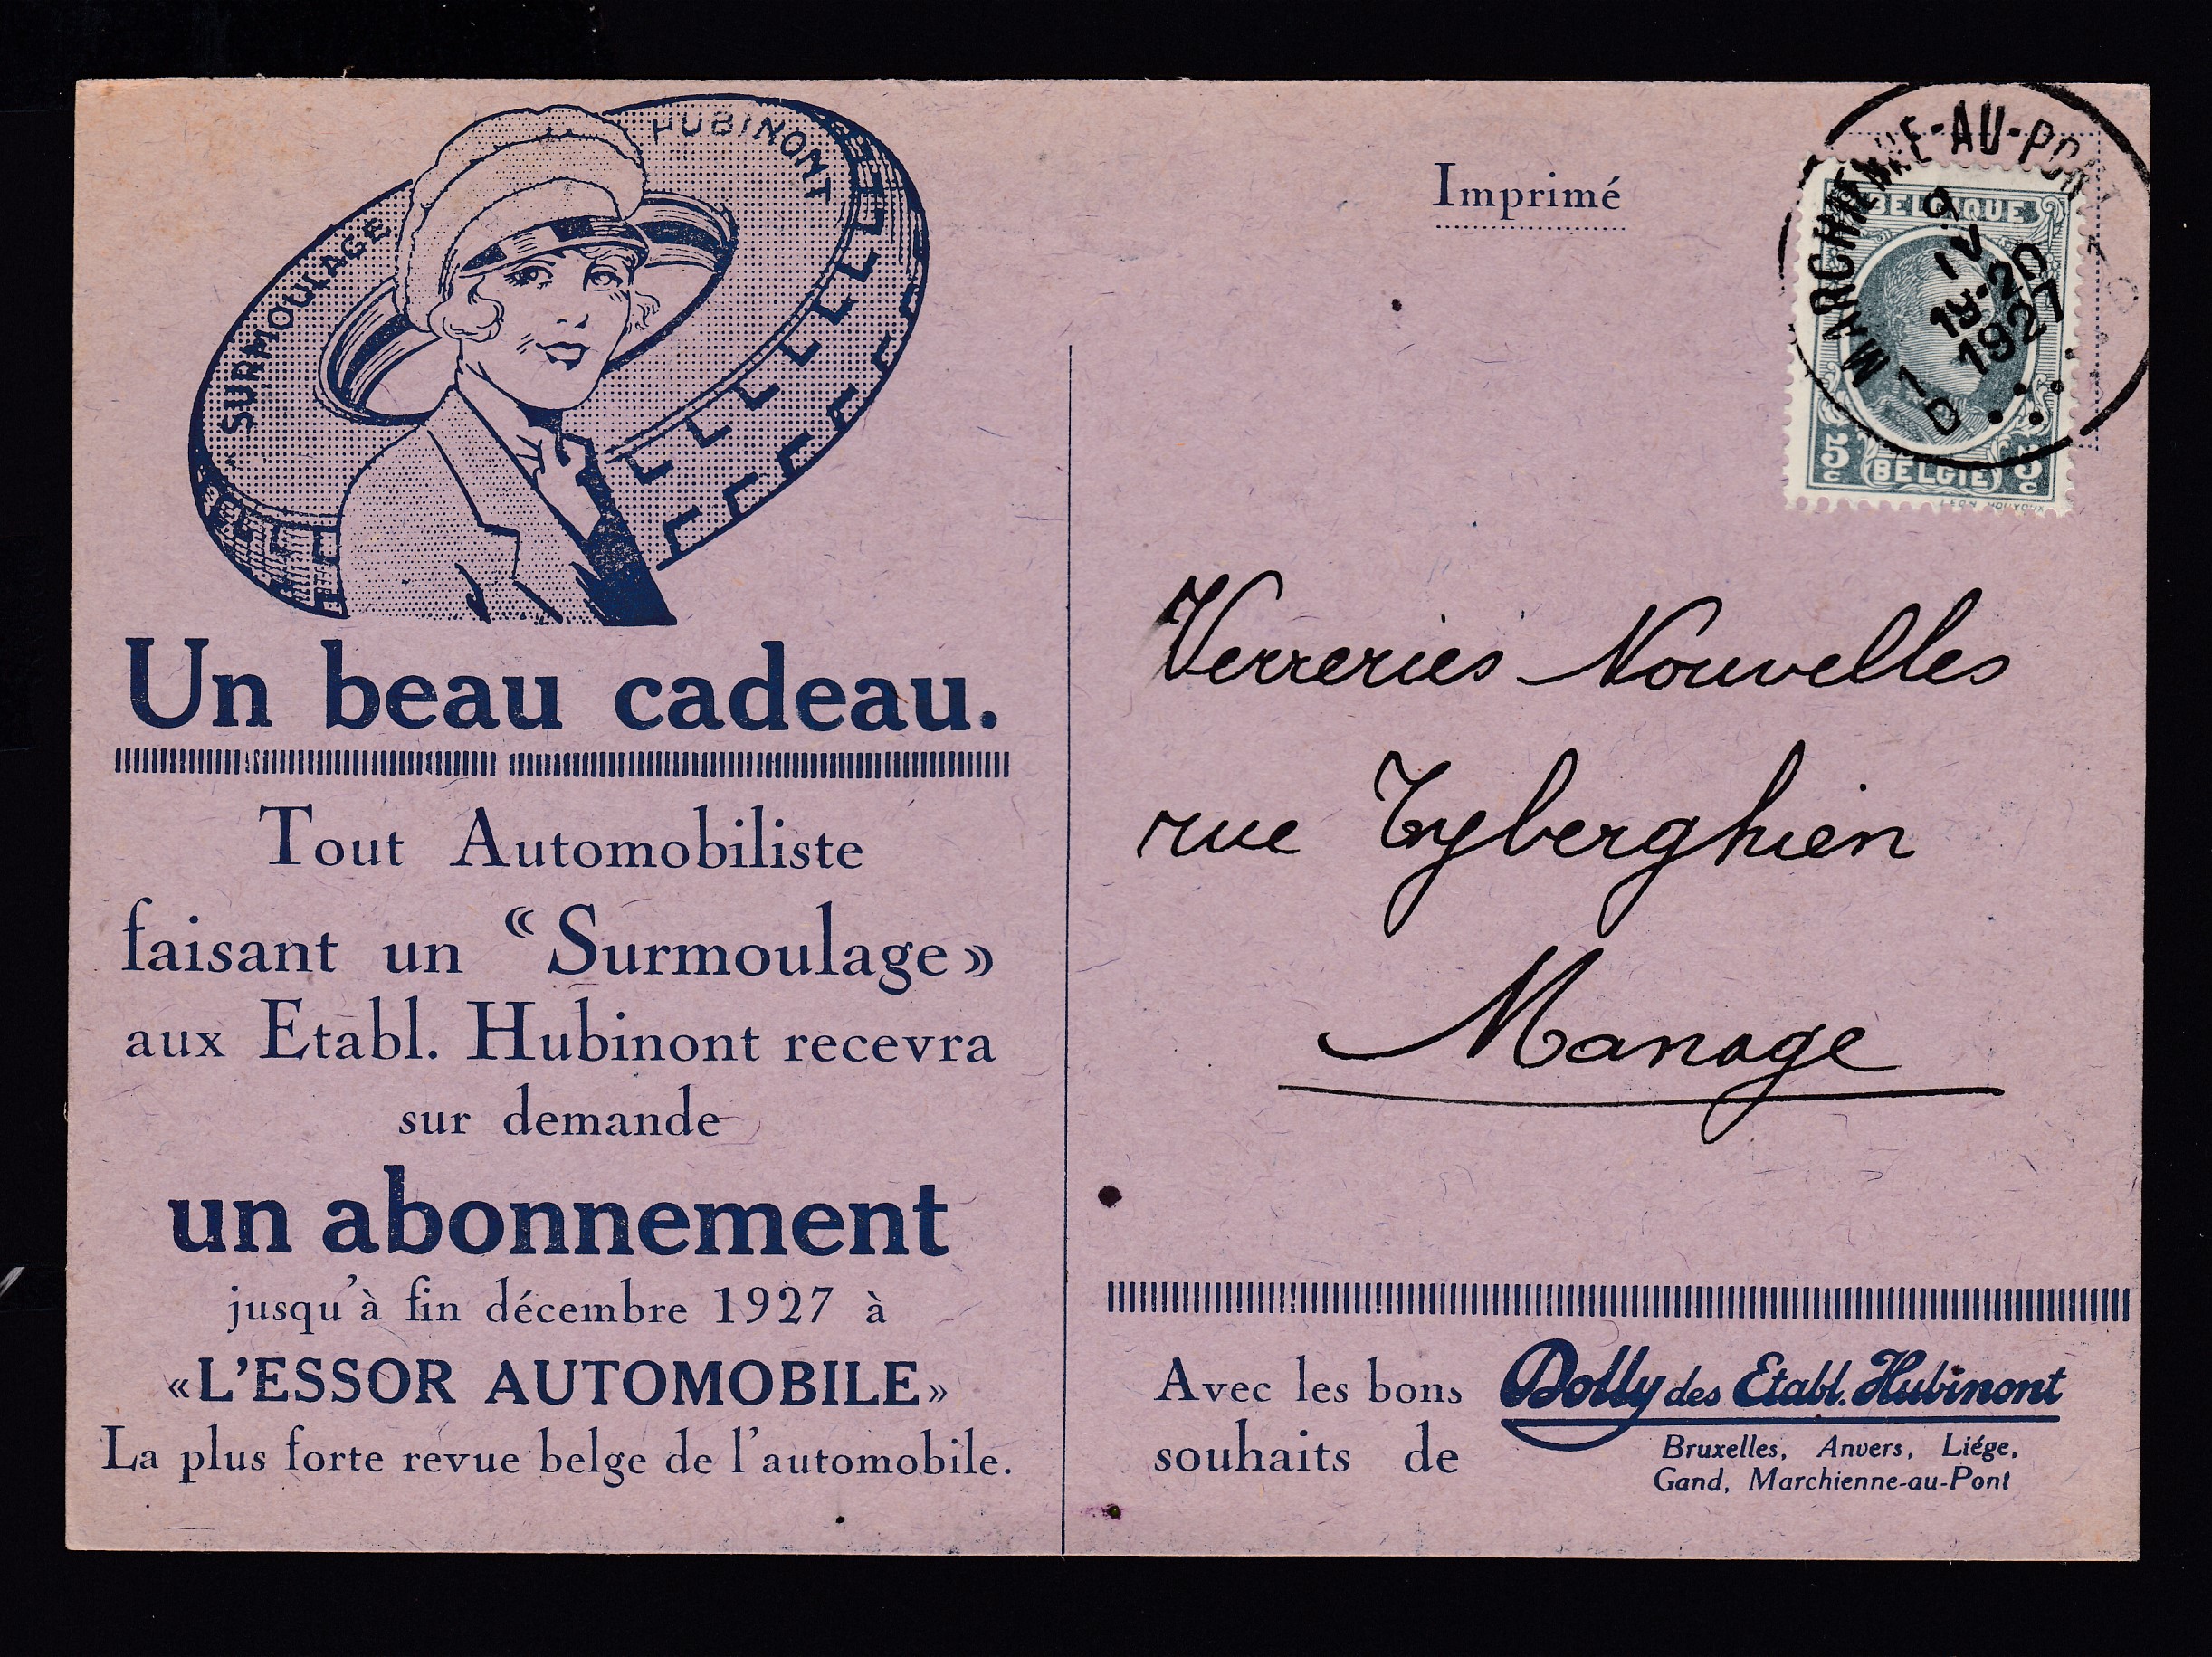 SURMOULAGE HUBINONT
Un beau cadeau.
Tout Automobiliste
faisant un “Surmoulage»
aux Etabl. Hubinont recevra
sur demande
un abonnement
jusqu'à fin décembre 1927 à
«L'ESSOR AUTOMOBILE»
La plus forte revue belge de l'automobile.
Imprimé
MARCHIENNE-AU-PONT
9
IV
19-20
1927
1
D
BELGIQUE
5 c 5 c
BELGIE
Verreries Nouvelles
rue Tyberghien
Manage
Avec les bons
souhaits de
Dolly des Etabl. Hubinont
Bruxelles, Anvers, Liége,
Gand, Marchienne-au-Pont